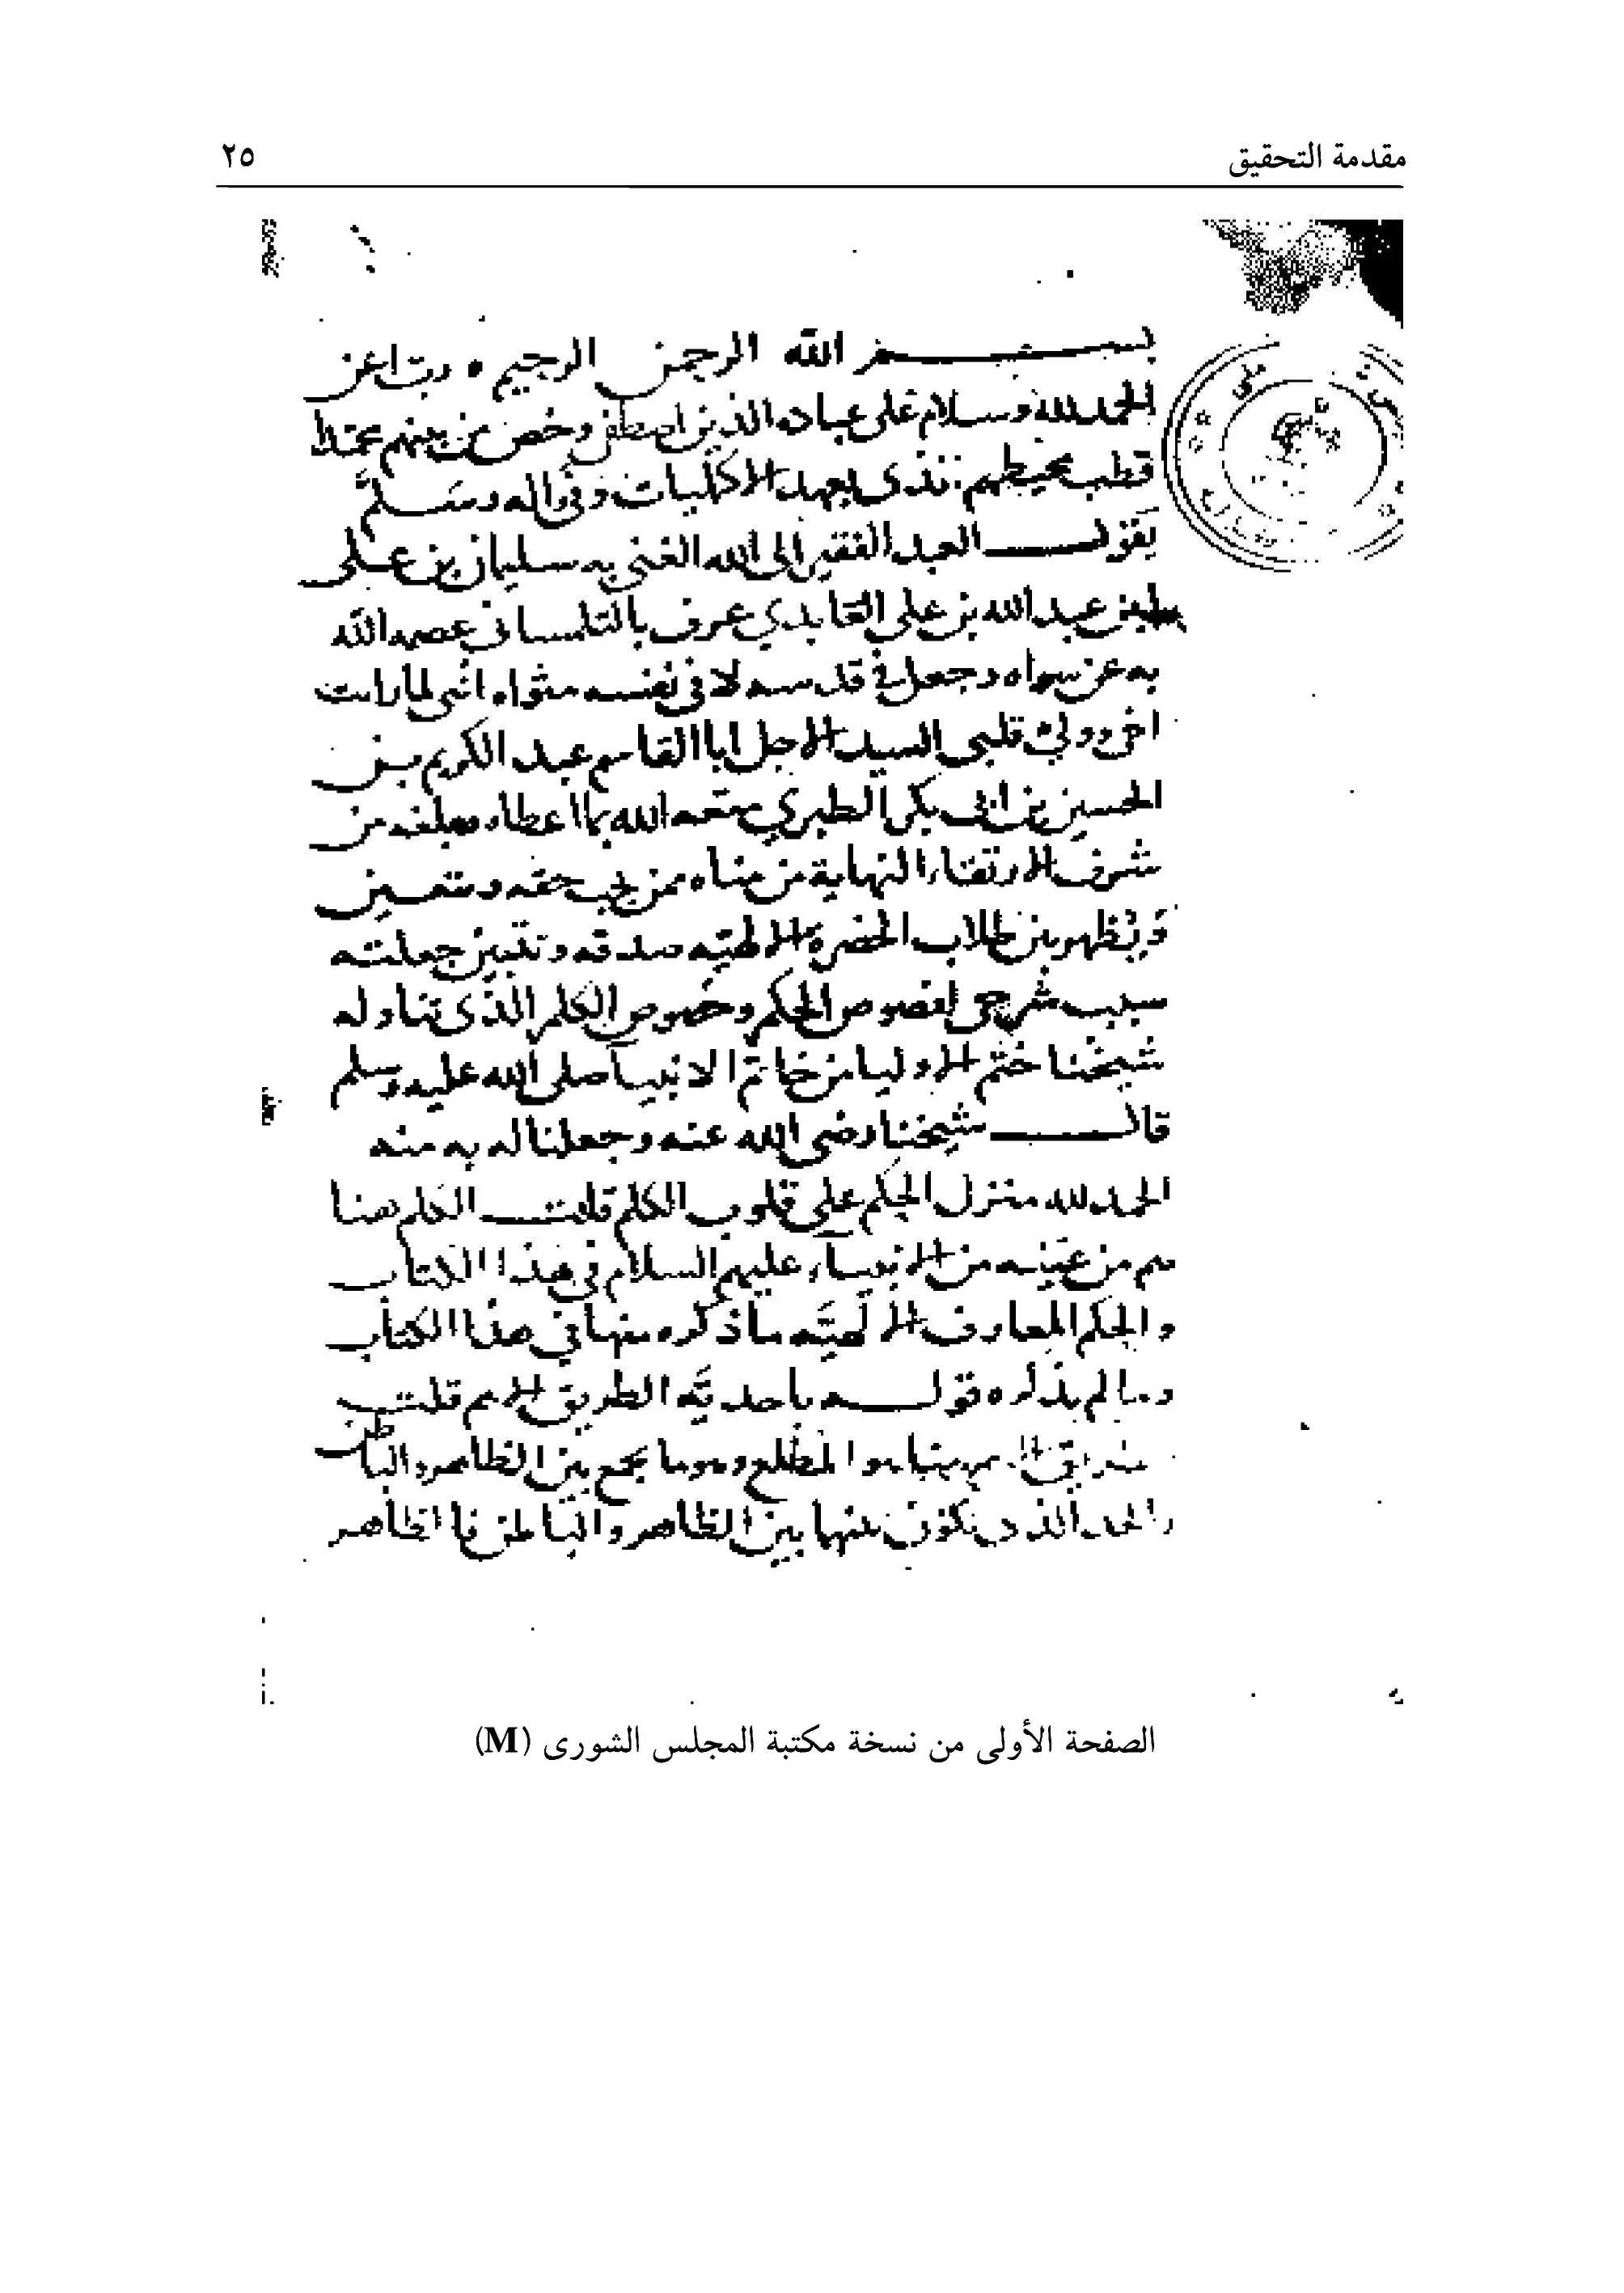 مقدمة التحقيق
٢٥
بسم الله الرحمن الرحيم رب اعن
الحمد لله وسلام على عباده الذين اصطفى وخص من بينهم محمدا
قطب محيطهم بعهد الاكليات وفى اله وسلم
يقول العبد الفقير الى الله الغني به سليمان بن علي
بن عبد الله بن علي العابدي عرف بالتلمساني عصمه الله
به عن سواه وجعل في قدسه لا في نفسه مثواه انني لما رايت
اخي وولي قلبي السيد الاجل ابا القاسم عبد الكريم بن
الحسين بن ابي بكر الطبري متعه الله بما اعطاه وبلغه من
شرف الارتقاء النهاية من مناه ممن يجب حقه ويتعين
ويظهر بين طلاب الحضرة الالهيه صدقه وتبين جعلته
سبب شرحي لفصوص الحكم وخصوص الكلم الذي تناوله
شيخنا ختم الاوليا من خاتم الانبيآ صلى الله عليه وسلم
قال شيخنا رضي الله عنه وجعلنا له به منه
الحمد لله منزل الحكم على قلوب الكلم قلت الكلم هنا
هم من عينه من الانبيآء عليهم السلام في هذا الكتاب
والحكم المعارف الالهيّه ما ذكره منها في هذا الكتاب
وما لم يذكره قوله باحديّه الطريق الامم قلت
طريق الامم هنا هو المطلع وهو ما يجمع بين الظاهر والباطن
والحد الذي يكون منها بين الظاهر والباطن فالظاهر
الصفحة الأولى من نسخة مكتبة المجلس الشورى (M)